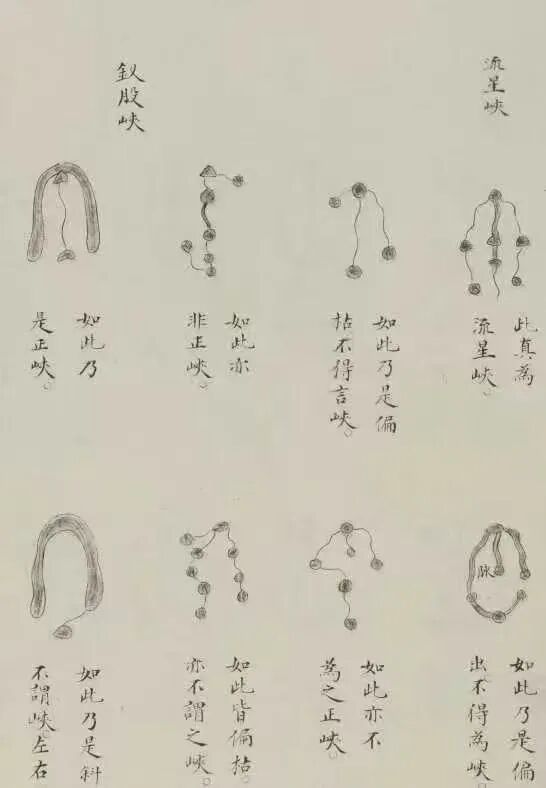 流星峽
此真為
流星峽。
如此乃是偏
出不得為峽。
脉
如此乃是偏
拈不得言峽。
如此亦不
為之正峽。
釵股峽
如此亦
非正峽。
如此皆偏拈。
亦不謂之峽。
如此乃
是正峽。
如此乃是斜
不謂峽左右